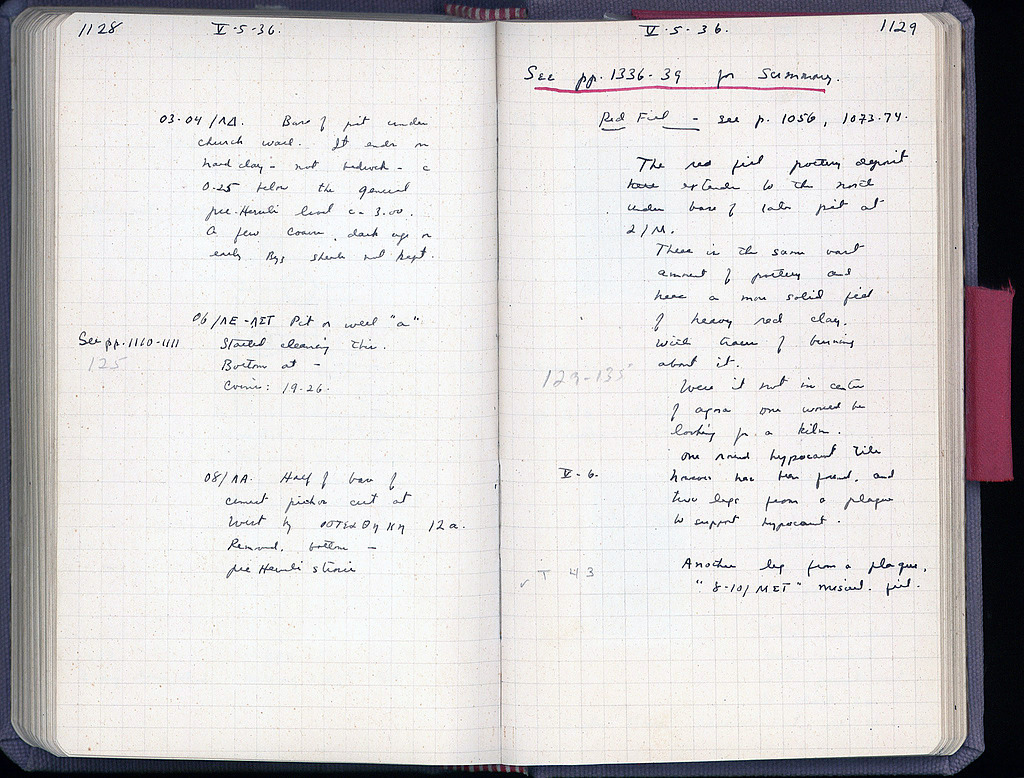 1128
V·5·36.
03·04/ΛΔ. Base of pit under
church wall. It ends in
hard clay - not bedrock - c
0.25 below the general
pre-Heruli level c - 3.00.
A few coarse, dark age or
early Byz sherds not kept.
06/ΛΕ-ΛΣΤ Pit or well "a"
See pp. 1110-1111
Started cleaning this.
125
Bottom at -
Coins: 19-26.
08/ΛΑ. Half of base of
cement pithos cut at
West by 12a.
Removed. bottom -
pre Heruli
V·5·36.
1129
See pp. 1336-39 for Summary.
Red Fill - see p. 1056, 1073-74.
The red fill pottery deposit
here extends to the north
under base of later pit at
2/Μ.
There is the same vast
amount of pottery and
here a more solid fill
of heavy red clay.
With traces of burning
about it.
129-135
Were it not in center
of agora one would be
looking for a kiln.
One round hypocaust tile
V-6.
however has been found, and
two legs from a plaque
to support hypocaust.
Another leg from a plaque,
✓ T 43
"8-10/ΜΣΤ" miscel. fill.